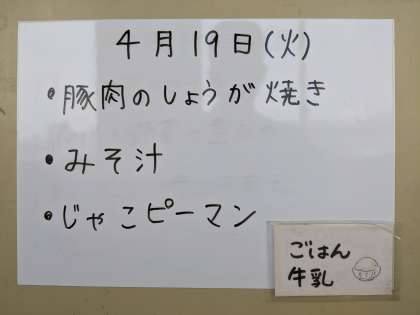 4月19日(火)
・豚肉のしょうが焼き
・みそ汁
・じゃこピーマン
ごはん
牛乳